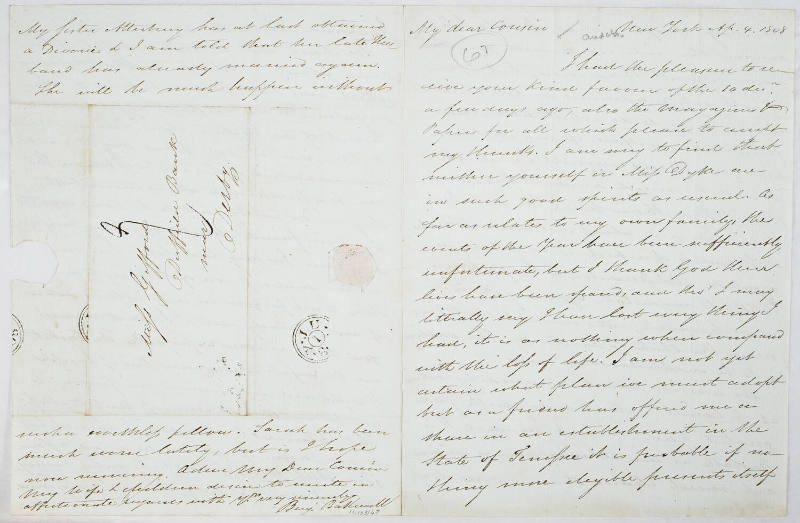 My dear Cousin New York Ap. 4. 1808
I had the pleasure to re-
ceive your kind favour of the 10 de
a few days ago, also the Magazines &
Papers for all which please to accept
my thanks. I am sorry to find that
neither yourself or Miss Dyke are
in such good spirits as usual. As
far as relates to my own family, the
events of the Year have been sufficiently
unfortunate, but I thank God their
lives have been spared, and tho' I may
litterally say I have lost every thing I
had, it is as nothing when compared
with the loss of life. I am not yet
certain what plan we must adopt
but as a friend has offered me a
share in an establishment in the
State of Tenessee it is probable if no-
thing more eligible presents itself
My sister Atterbury has at last obtained
a Divorce & I am told that her late Hus
band has already married again.
She will be much happier without
such a worthless fellow. Sarah has been
much worse lately, but is I hope
now recovering. Adieu My Dear Cousin
My Wife & children desire to unite in
affectionate regards with Yrs very sincerely
Benj. Bakewell
Miss Gifford
Duffield Bank
near
Derby